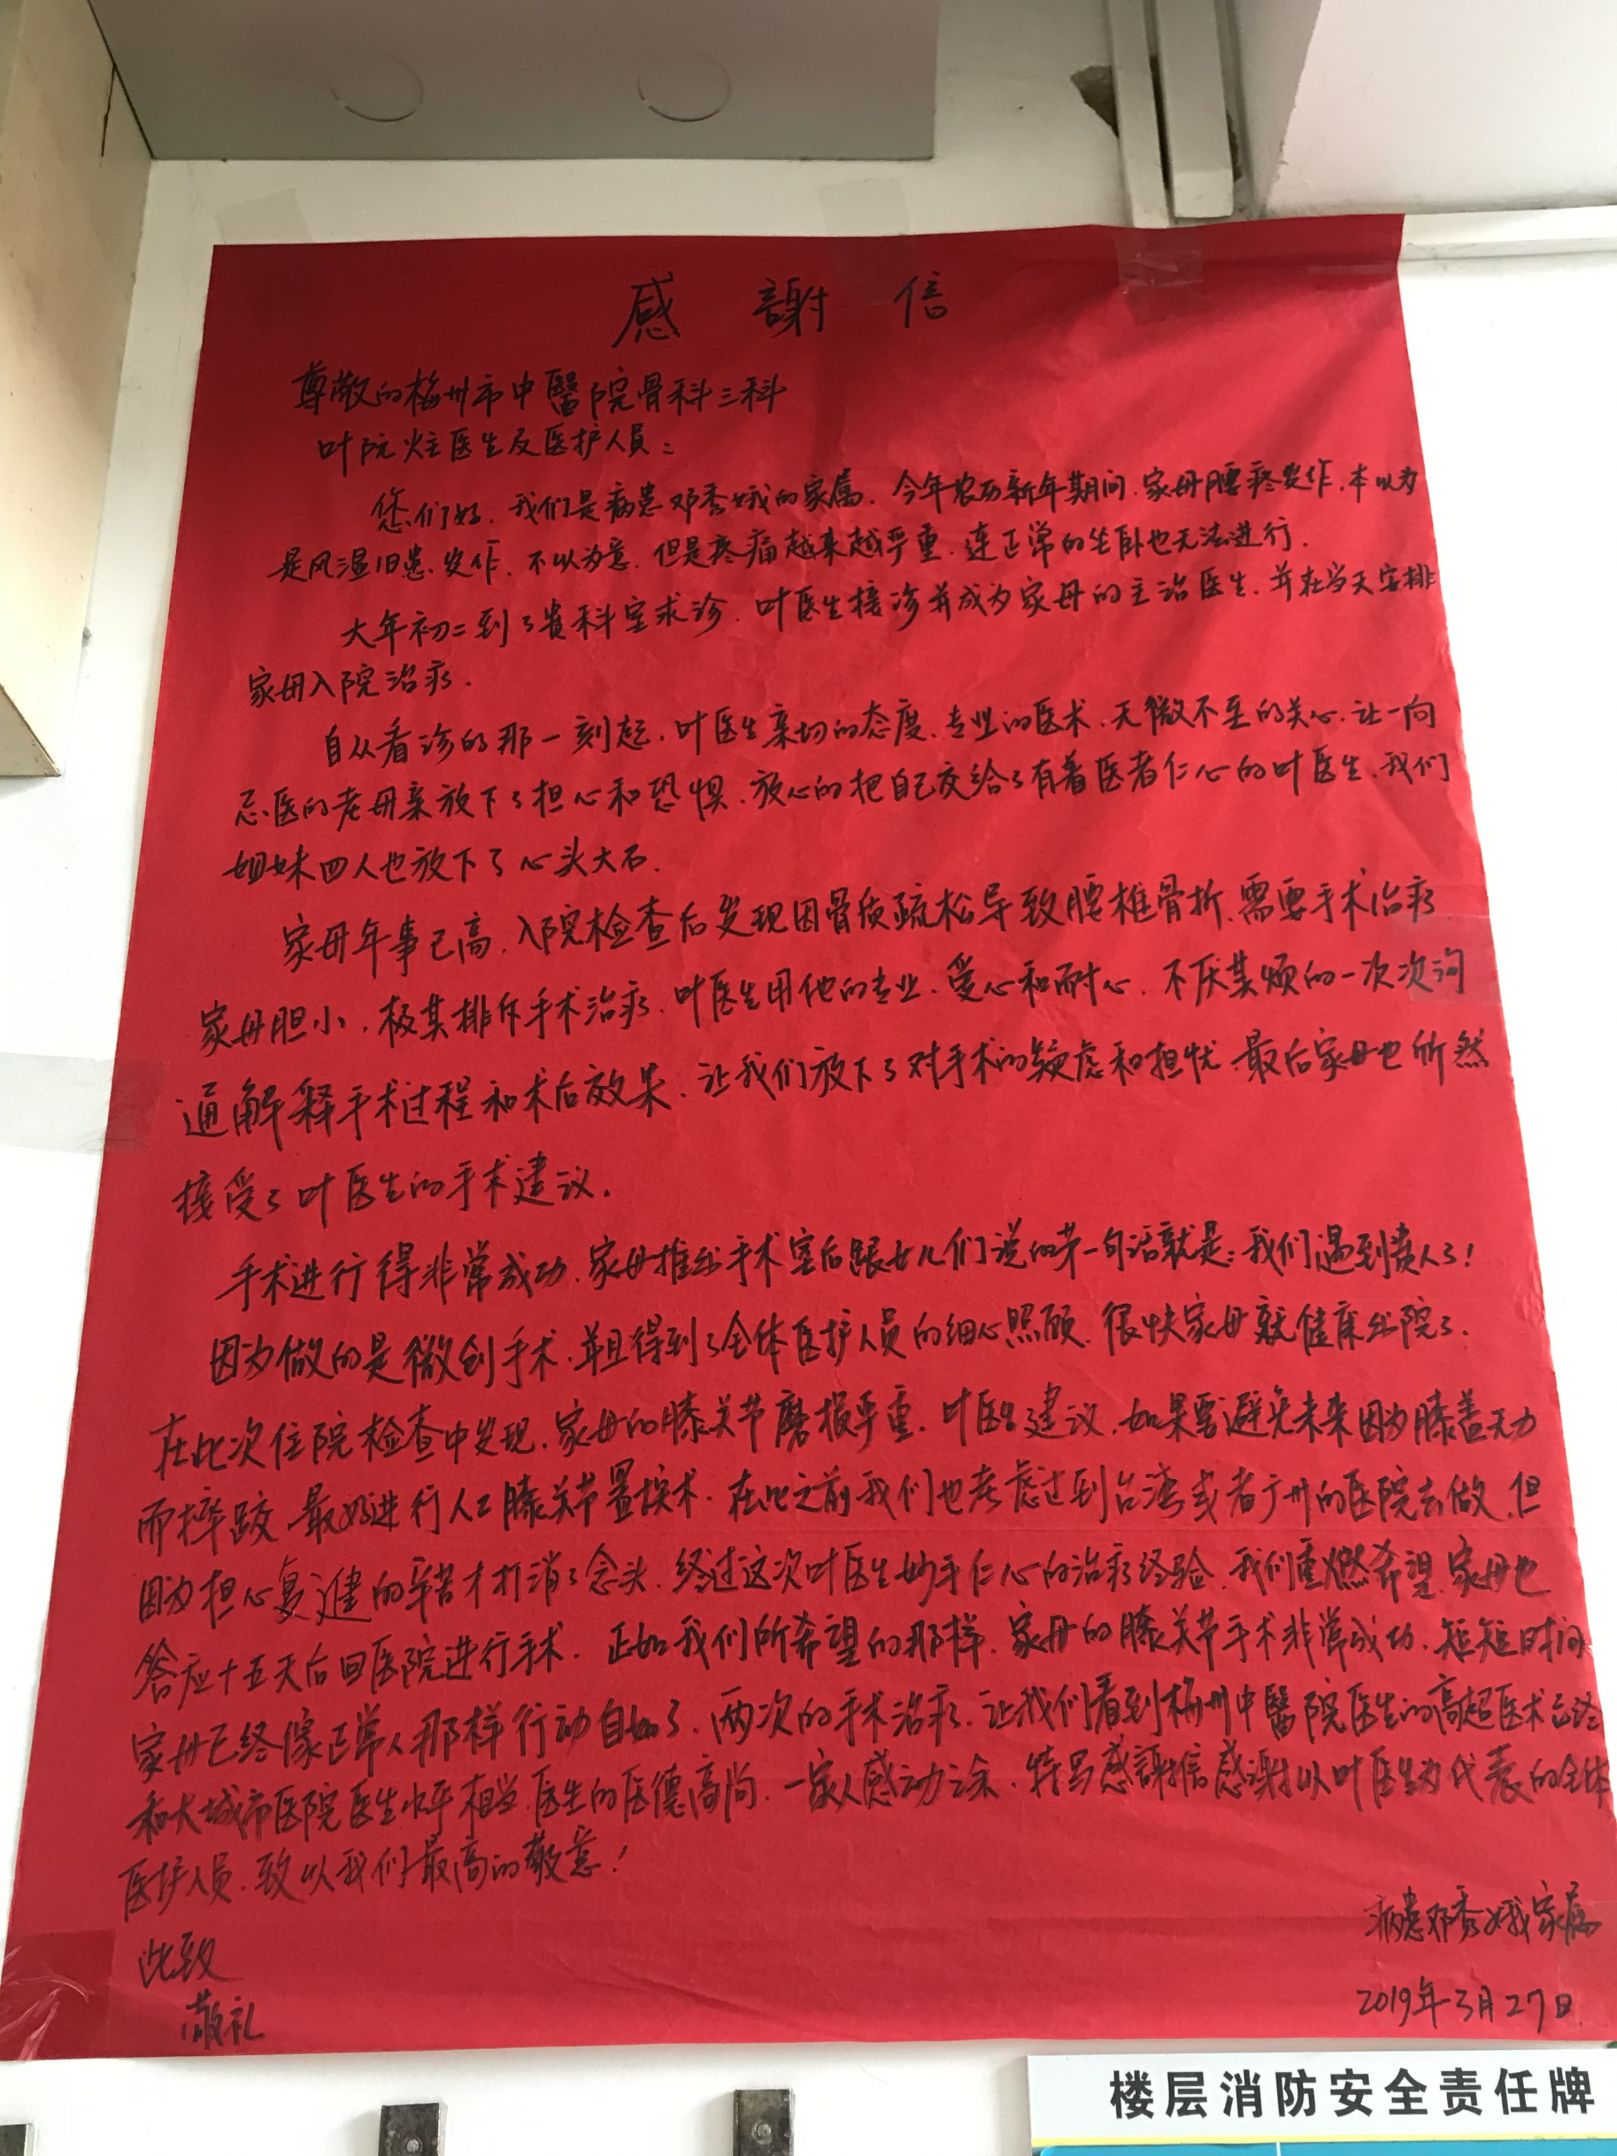 感 謝 信
尊敬的梅州市中醫院骨科三科
叶阮炷医生及医护人员:
您们好,我们是病患邓秀娥的家属,今年农历新年期间,家母腰疼发作,本以为
是风湿旧患发作,不以为意,但是疼痛越来越严重,连正常的坐卧也无法进行.
大年初二到了贵科室求诊,叶医生接诊并成为家母的主治医生,并在当天安排
家母入院治疗.
自从看诊的那一刻起,叶医生亲切的态度、专业的医术、无微不至的关心,让一向
忌医的老母亲放下了担心和恐惧,放心的把自己交给了有着医者仁心的叶医生,我们
姐妹四人也放下了心头大石.
家母年事已高,入院检查后发现因骨质疏松导致腰椎骨折,需要手术治疗
家母胆小,极其排斥手术治疗,叶医生用他的专业、爱心和耐心,不厌其烦的一次次沟
通解释手术过程和术后效果,让我们放下了对手术的疑虑和担忧,最后家母也欣然
接受了叶医生的手术建议.
手术进行得非常成功,家母推出手术室后跟女儿们说的第一句话就是:我们遇到贵人了!
因为做的是微创手术,并且得到了全体医护人员的细心照顾,很快家母就健康出院了.
在此次住院检查中发现,家母的膝关节磨损严重,叶医生建议,如果要避免未来因为膝盖无力
而摔跤,最好进行人工膝关节置换术,在此之前我们也考虑过到台湾或者广州的医院去做,但
因为担心复健的辛苦才打消了念头,经过这次叶医生妙手仁心的治疗经验,我们重燃希望,家母也
答应十五天后回医院进行手术,正如我们所希望的那样,家母的膝关节手术非常成功,短短时间
家母已经像正常人那样行动自如了,两次的手术治疗,让我们看到梅州中醫院医生的高超医术已经
和大城市医院医生水平相当,医生的医德高尚,一家人感动之余,特写感謝信感谢以叶医生为代表的全体
医护人员,致以我们最高的敬意!
病患邓秀娥家属
此致
敬礼
2019年3月27日
楼层消防安全责任牌